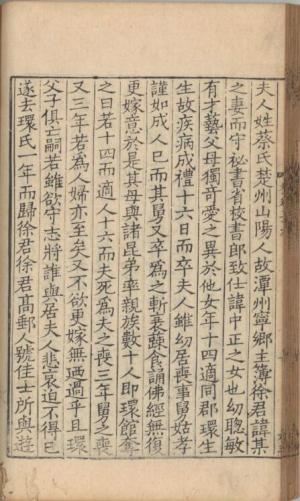 夫人姓蔡氏楚州山陽人故潭州寧鄉主簿徐君諱某
之妻而守秘書省校書郎致仕諱中正之女也幼聦敏
有才藝父母獨竒愛之異於他女年十四適同郡環生
生故疾病成禮十六日而卒夫人雖幼居喪事舅姑孝
謹如成人已而其舅又卒爲之斬衰蔬食誦佛經無復
更嫁意於是其母與諸昆弟率親族數十人即環館奪
之曰若十四而適人十六而夫死爲夫之喪三年舅之喪
又三年若爲人婦亦至矣又不欲更嫁無迺過乎且環
父子俱亡嗣若雖欲守志將誰與居夫人悲哀迫不得已
遂去環氏一年而歸徐君徐君高郵人號佳士所與遊